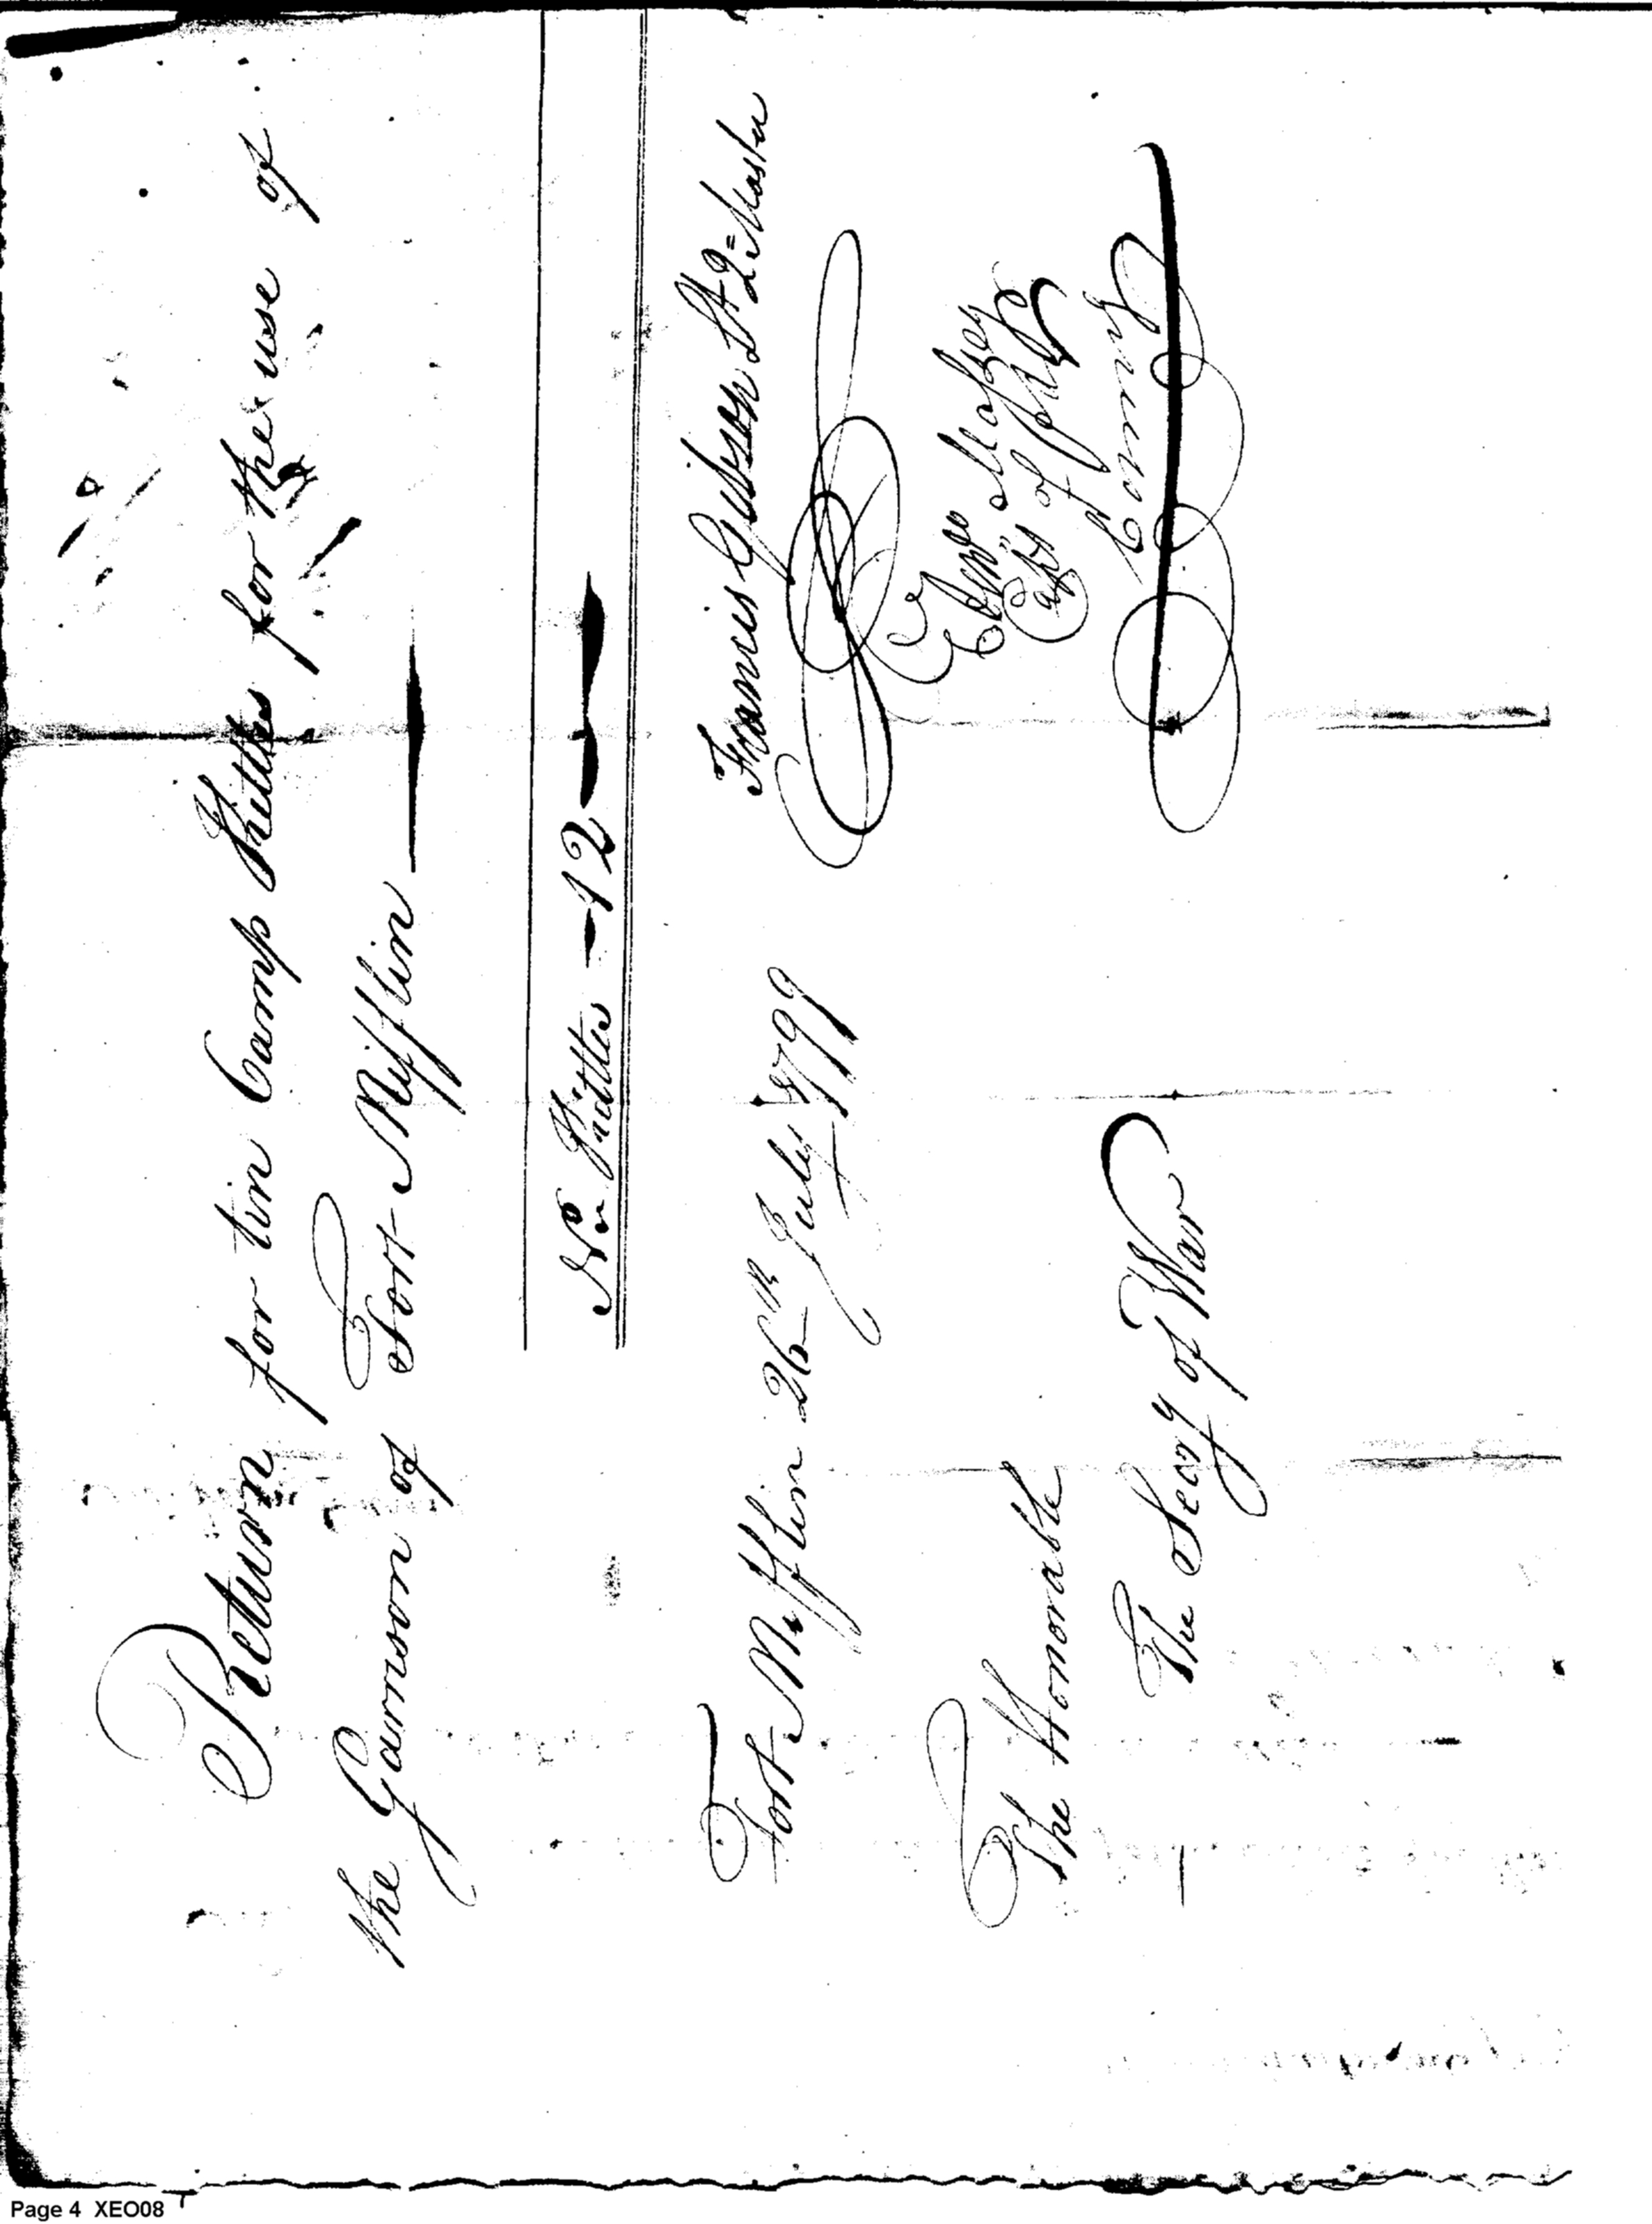 Return for tin Camp Kittles for the use of
the Garrison of Fort Mifflin
No Kittles 12
Fort Mifflin 26th July 1799
Francis Gibson Lt Qr Master
Ebenr Massey
Capt of Art
Comg
The Honorable
The Secy of War
Page 4 XEO08